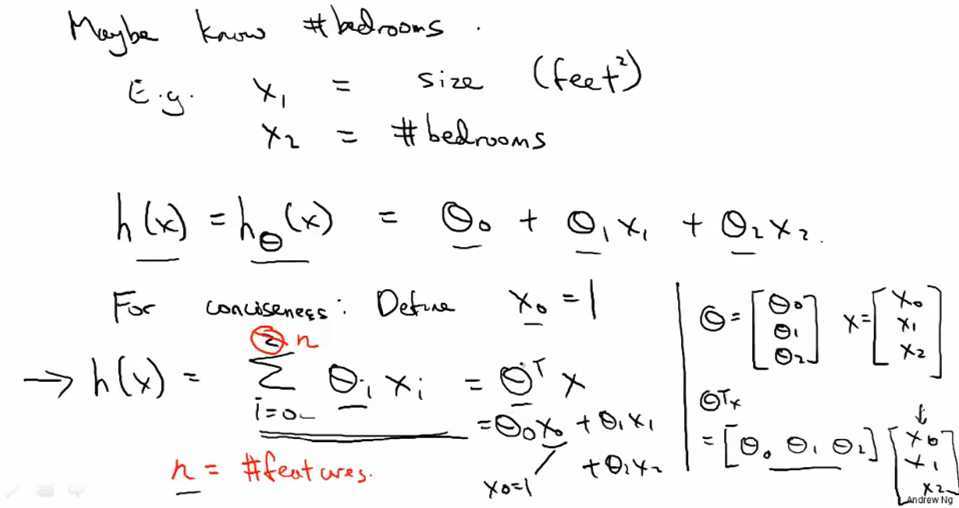 Maybe know #bedrooms.
E.g. x₁ = size (feet²)
x₂ = #bedrooms
h(x) = h_θ(x) = θ₀ + θ₁x₁ + θ₂x₂.
For conciseness: Define x₀ = 1
→ h(x) = ∑_{i=0}^{2 n} θᵢ xᵢ = θᵀx
= θ₀x₀ + θ₁x₁
+ θ₂x₂
x₀=1
n = #features.
θ = [θ₀ θ₁ θ₂] x = [x₀ x₁ x₂]
θᵀx
= [θ₀ θ₁ θ₂] [x₀ x₁ x₂]
Andrew Ng